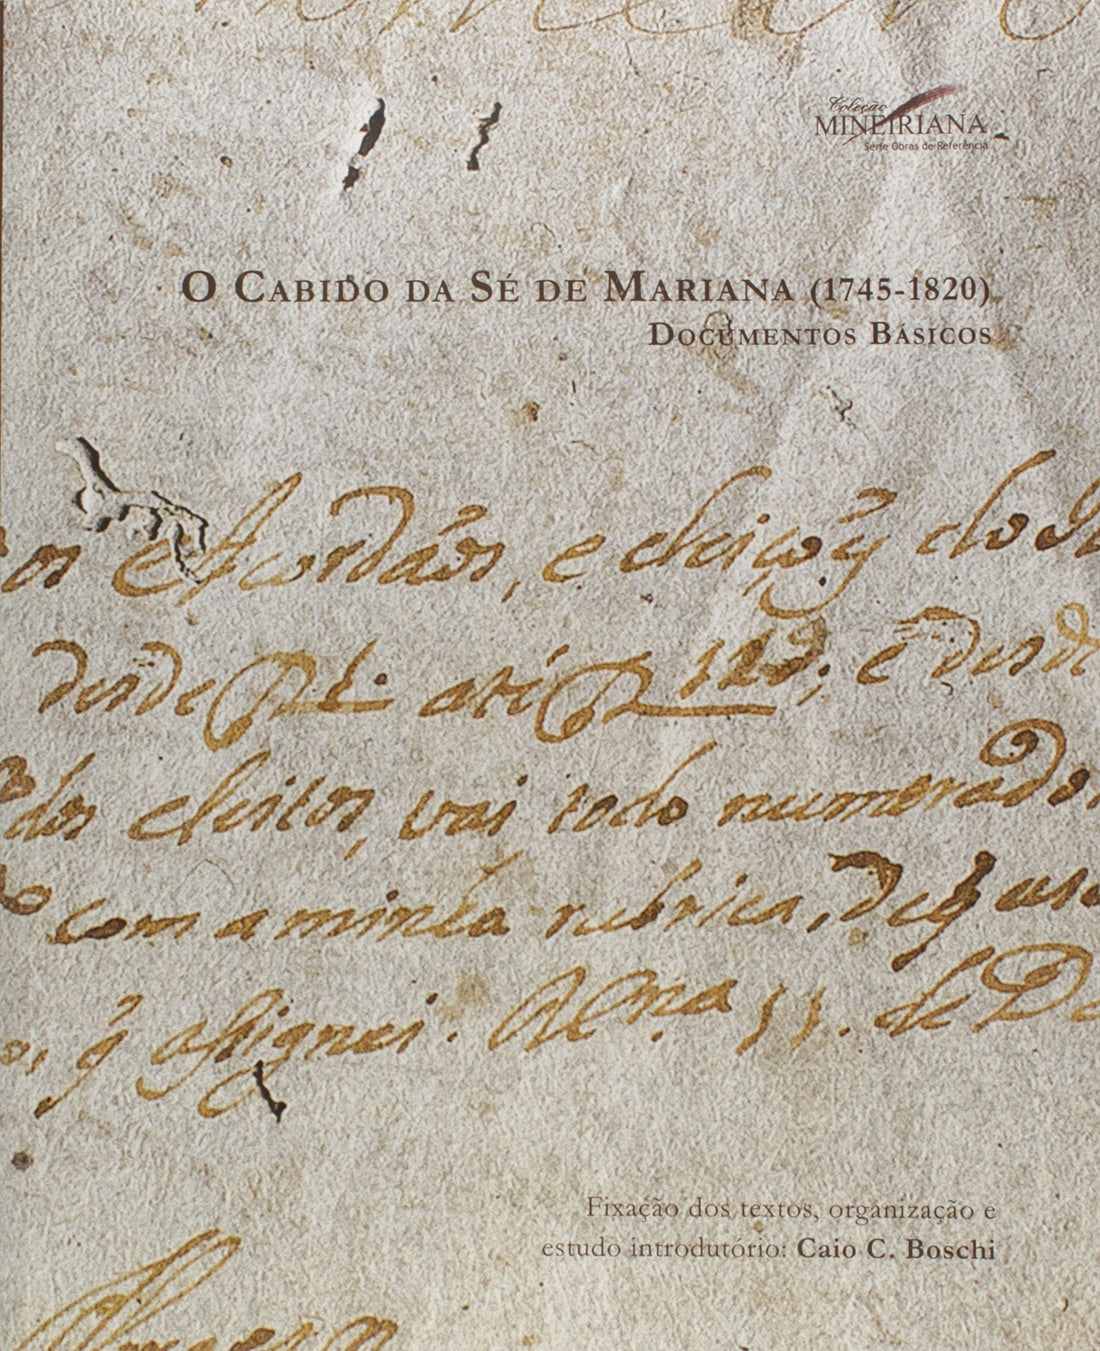 Coleção
MINEIRIANA
Série Obras de Referência
O CABIDO DA SÉ DE MARIANA (1745-1820)
DOCUMENTOS BÁSICOS
os Acordãos, e eleiçoẽs do
desde atè e desde
dos eleitos, vai todo numerado
com a minha rubrica, de q̃ uso
q̃ assignei. de
Fixação dos textos, organização e
estudo introdutório: Caio C. Boschi